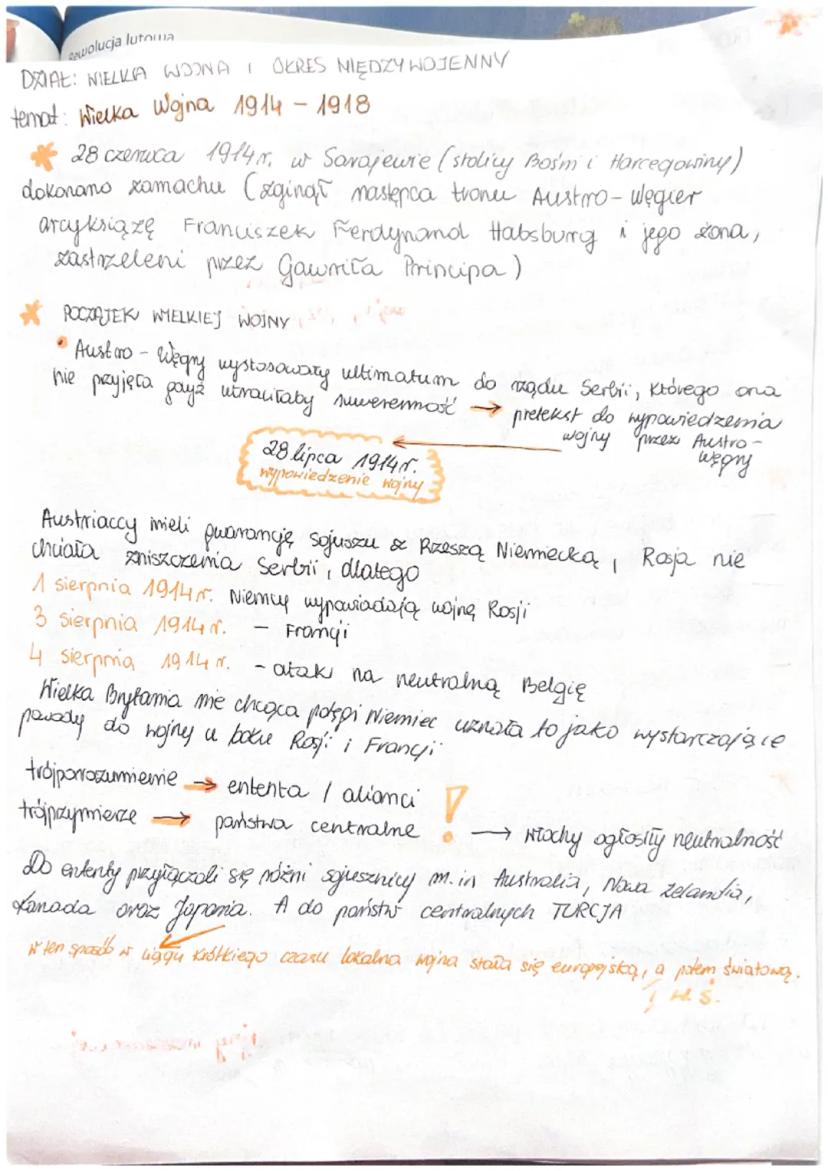 Rewolucja lutowa
DZIAŁ: WIELKA WOJNA I OKRES MIĘDZYWOJENNY
temat: Wielka Wojna 1914 - 1918
28 czerwca 1914 r. w Sarajewie (stolicy Bośni i Harcegowiny)
dokonano zamachu (zginął następca tronu Austro-Węgier
arcyksiążę Franciszek Ferdynand Habsburg i jego żona,
zastrzeleni przez Gawriła Principa)
POCZĄTEK WIELKIEJ WOJNY
• Austro-Węgry wystosowały ultimatum do rządu Serbii, którego ona
nie przyjęła gdyż utraciłaby suwerenność → pretekst do wypowiedzenia
wojny przez Austro-
Węgry
28 lipca 1914 r.
wypowiedzenie wojny
Austriaccy mieli gwarancję sojuszu z Rzeszą Niemiecką, Rosja nie
chciała zniszczenia Serbii, dlatego
1 sierpnia 1914 r. Niemcy wypowiadają wojnę Rosji
3 sierpnia 1914 r. - Francji
4 sierpnia 1914 r. - atak na neutralną Belgię
Wielka Brytania nie chcąca potęgi Niemiec uznała to jako wystarczające
powody do wojny u boku Rosji i Francji
trójporozumienie → ententa / alianci
trójprzymierze → państwa centralne ! → Włochy ogłosiły neutralność
Do ententy przyłączali się różni sojusznicy m.in Australia, Nowa Zelandia,
Kanada oraz Japonia. A do państw centralnych TURCJA
W ten sposób w ciągu krótkiego czasu lokalna wojna stała się europejską, a potem światową.
I W Ś.